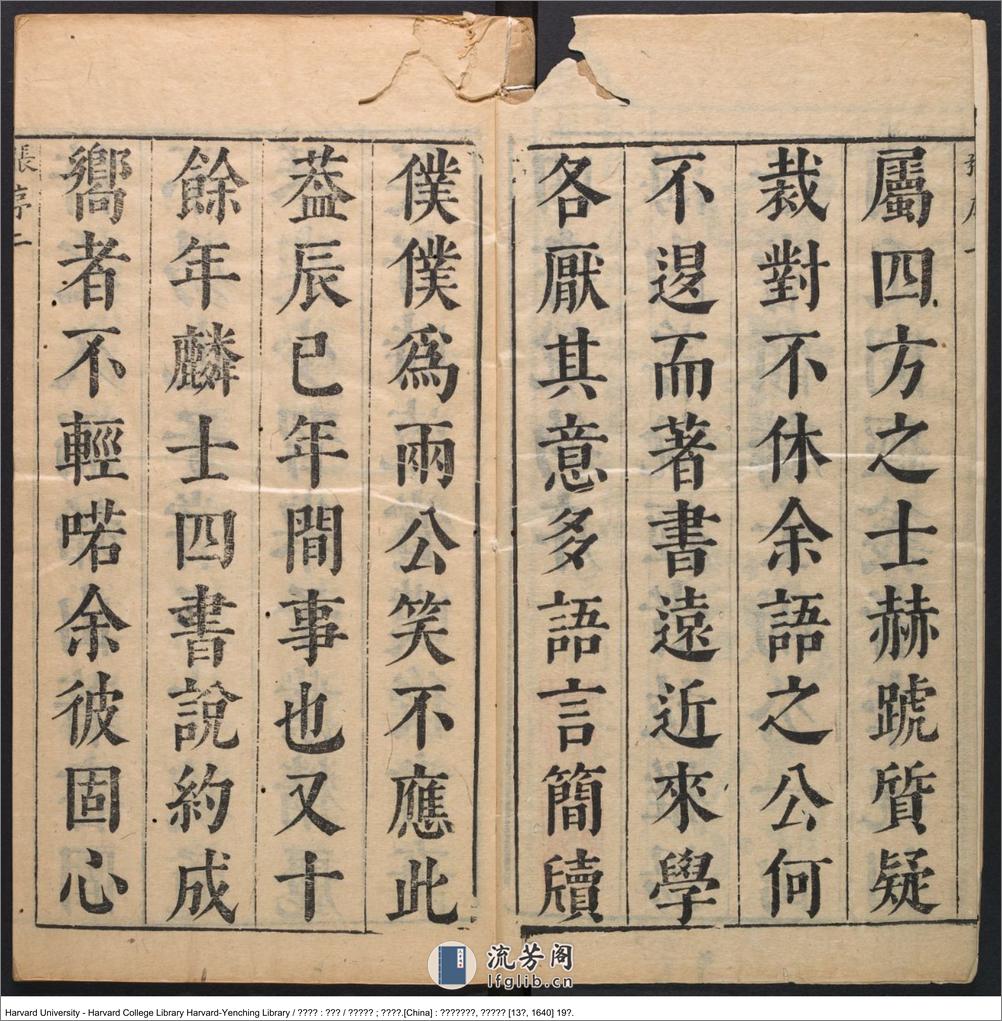 屬四方之士赫蹏質疑
裁對不休余語之公何
不遏而著書遠近來學
各厭其意多語言簡牘
僕僕爲兩公笑不應此
葢辰巳年間事也又十
餘年麟士四書說約成
嚮者不輕喏余彼固心
張序二
流芳阁
lfglib.cn
Harvard University - Harvard College Library Harvard-Yenching Library / ???? : ??? / ????? ; ????.[China] : ???????, ????? [13?, 1640] 19?.